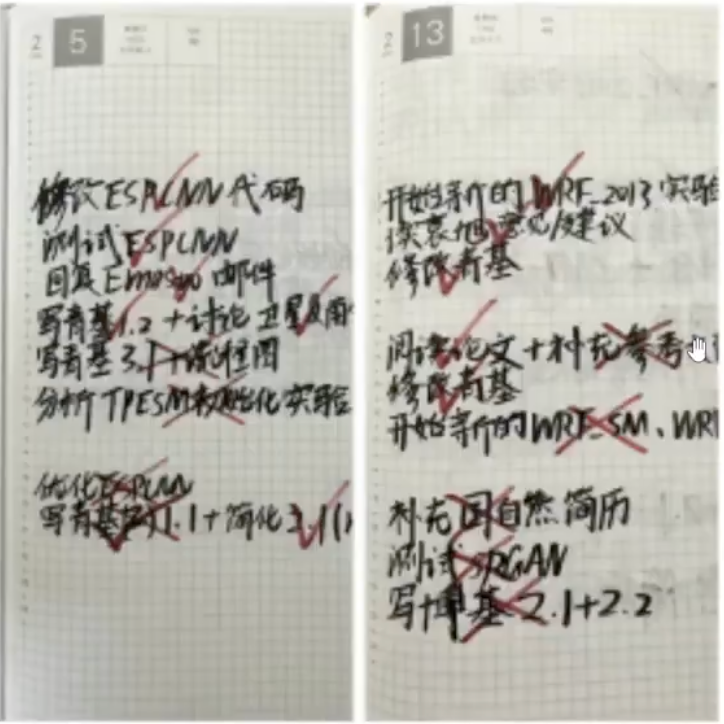 2
5
修改ESPCNN代码
测试ESPCNN
回复 邮件
写青基1.2+讨论卫星及雨
写青基3.1+流程图
分析TPESM初始化实验
优化ESPCNN
写青基 1.1+简化3.1(
2
13
开始新的WRF_2013实验
读袁旭意见/建议
修改青基
阅读论文+补充参考
修改青基
开始新的WRF_SM、WR
补充国自然简历
测试SRGAN
写 基2.1+2.2